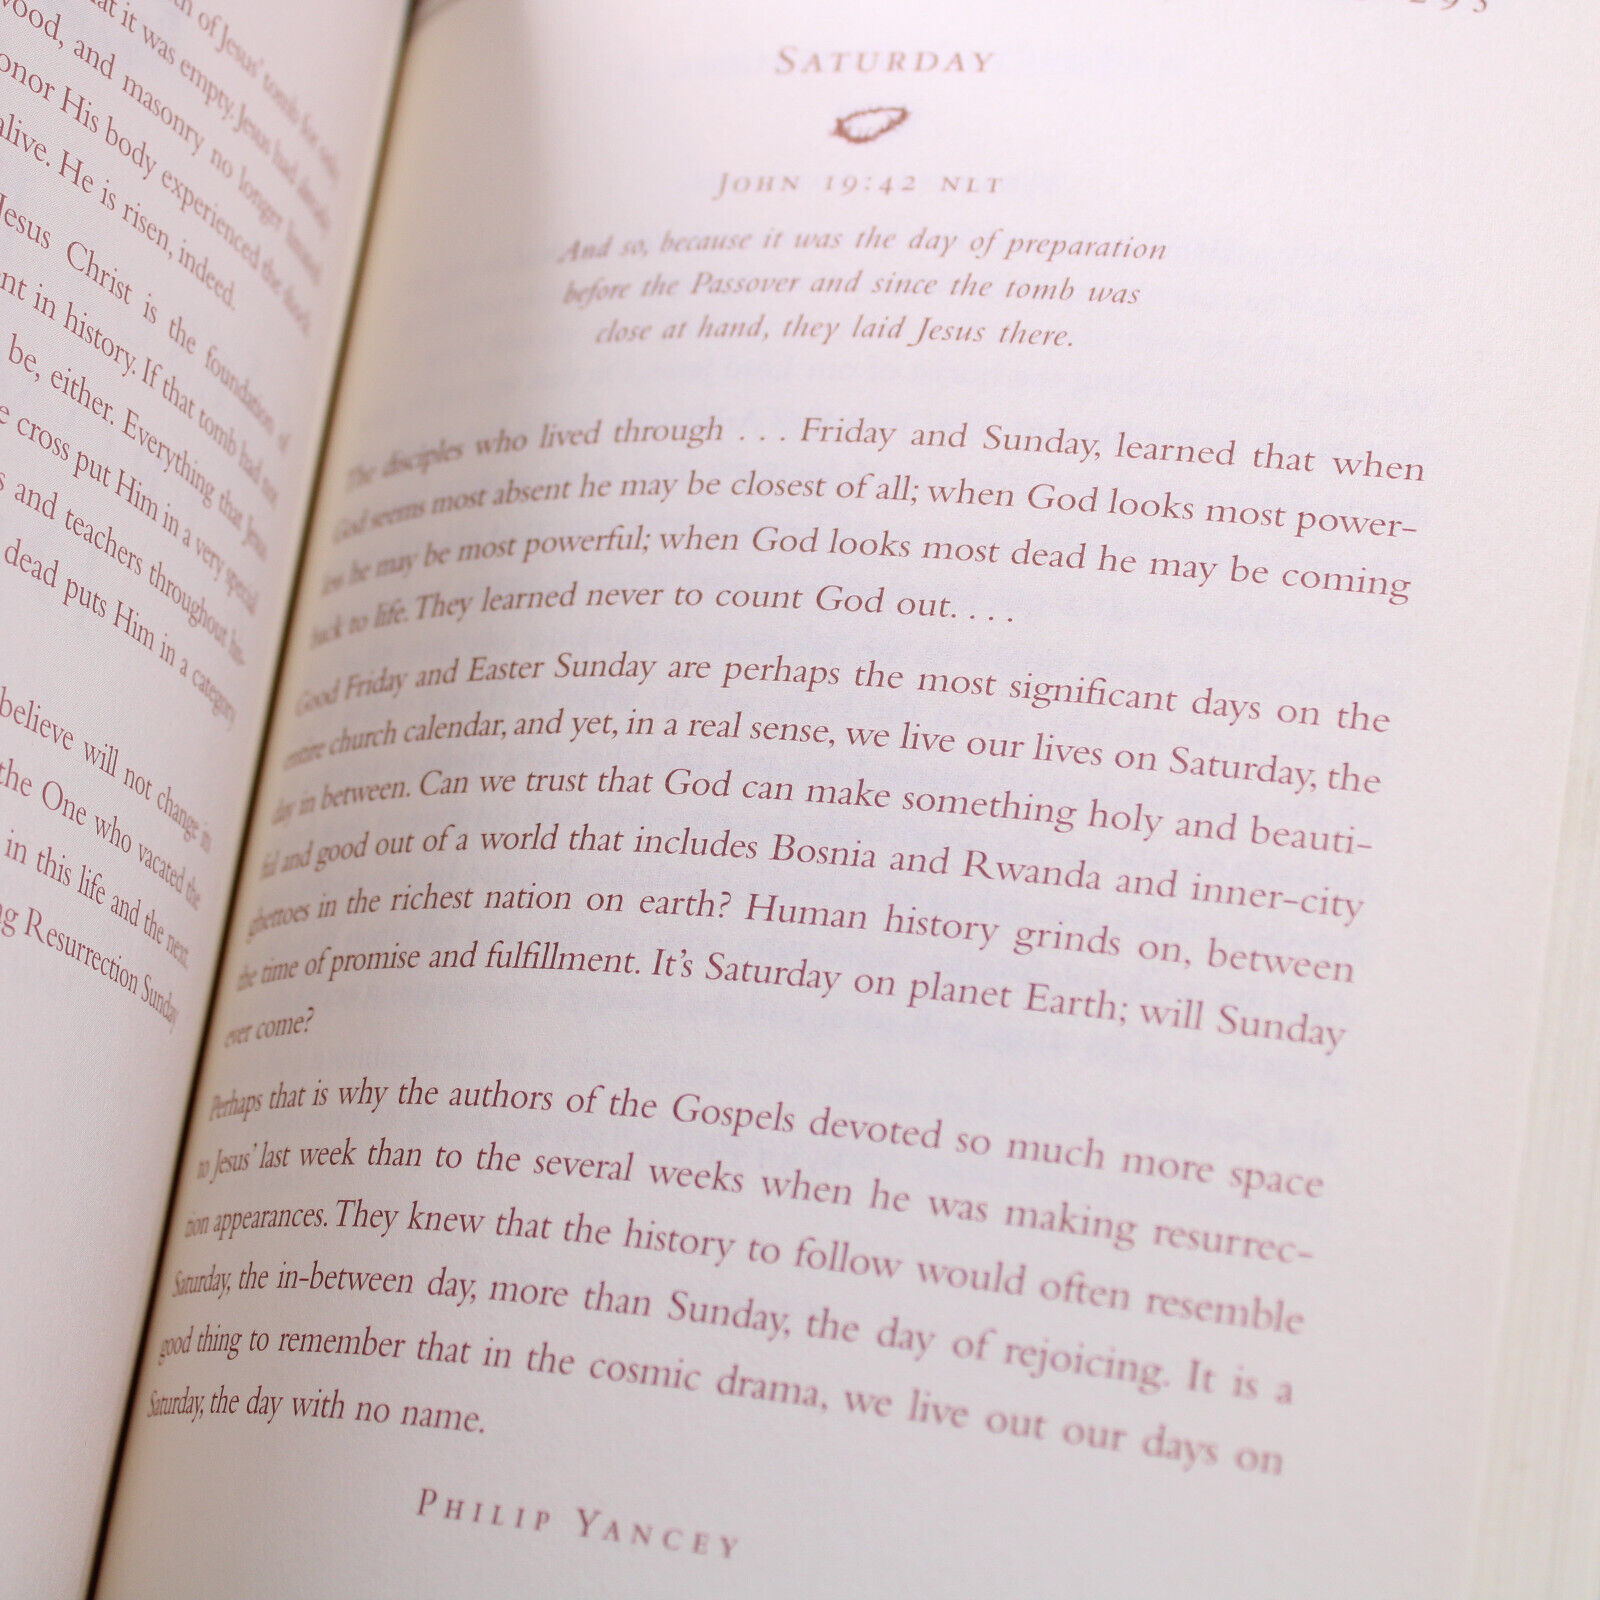 of Jesus' tomb for
that it was empty. Jesus had
wood, and masonry no longer
onor His body experienced the
alive. He is risen, indeed.
Jesus Christ is the foundation of
nt in history. If that tomb had not
be, either. Everything that Jesus
e cross put Him in a very special
s and teachers throughout his-
dead puts Him in a category
believe will not change in
the One who vacated the
in this life and the next.
ng Resurrection Sunday
293
SATURDAY
JOHN 19:42 NLT
And so, because it was the day of preparation
before the Passover and since the tomb was
close at hand, they laid Jesus there.
The disciples who lived through . . . Friday and Sunday, learned that when
God seems most absent he may be closest of all; when God looks most power-
less he may be most powerful; when God looks most dead he may be coming
back to life. They learned never to count God out. . . .
Good Friday and Easter Sunday are perhaps the most significant days on the
entire church calendar, and yet, in a real sense, we live our lives on Saturday, the
day in between. Can we trust that God can make something holy and beauti-
ful and good out of a world that includes Bosnia and Rwanda and inner-city
ghettoes in the richest nation on earth? Human history grinds on, between
the time of promise and fulfillment. It's Saturday on planet Earth; will Sunday
ever come?
Perhaps that is why the authors of the Gospels devoted so much more space
to Jesus' last week than to the several weeks when he was making resurrec-
tion appearances. They knew that the history to follow would often resemble
Saturday, the in-between day, more than Sunday, the day of rejoicing. It is a
good thing to remember that in the cosmic drama, we live out our days on
Saturday, the day with no name.
PHILIP YANCEY